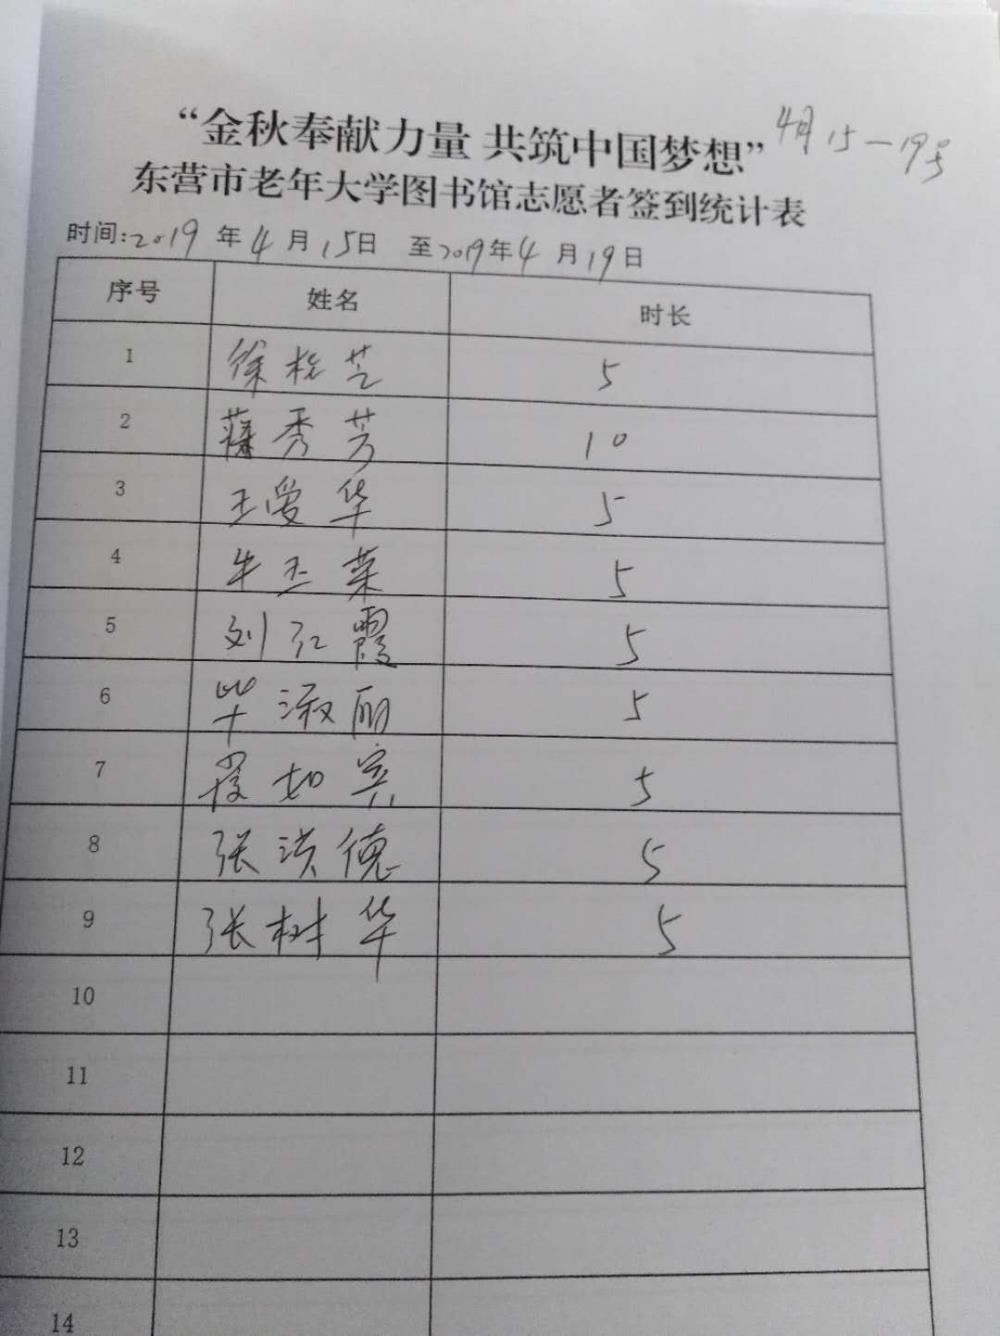 “金秋奉献力量 共筑中国梦想” 4月15—19号
东营市老年大学图书馆志愿者签到统计表
时间:2019年4月15日 至2019年4月19日
序号 姓名 时长
1 徐桂芝 5
2 薄秀芳 10
3 王爱华 5
4 牛玉荣 5
5 刘红霞 5
6 毕淑丽 5
7 如宾 5
8 张洪德 5
9 张树华 5
10
11
12
13
14